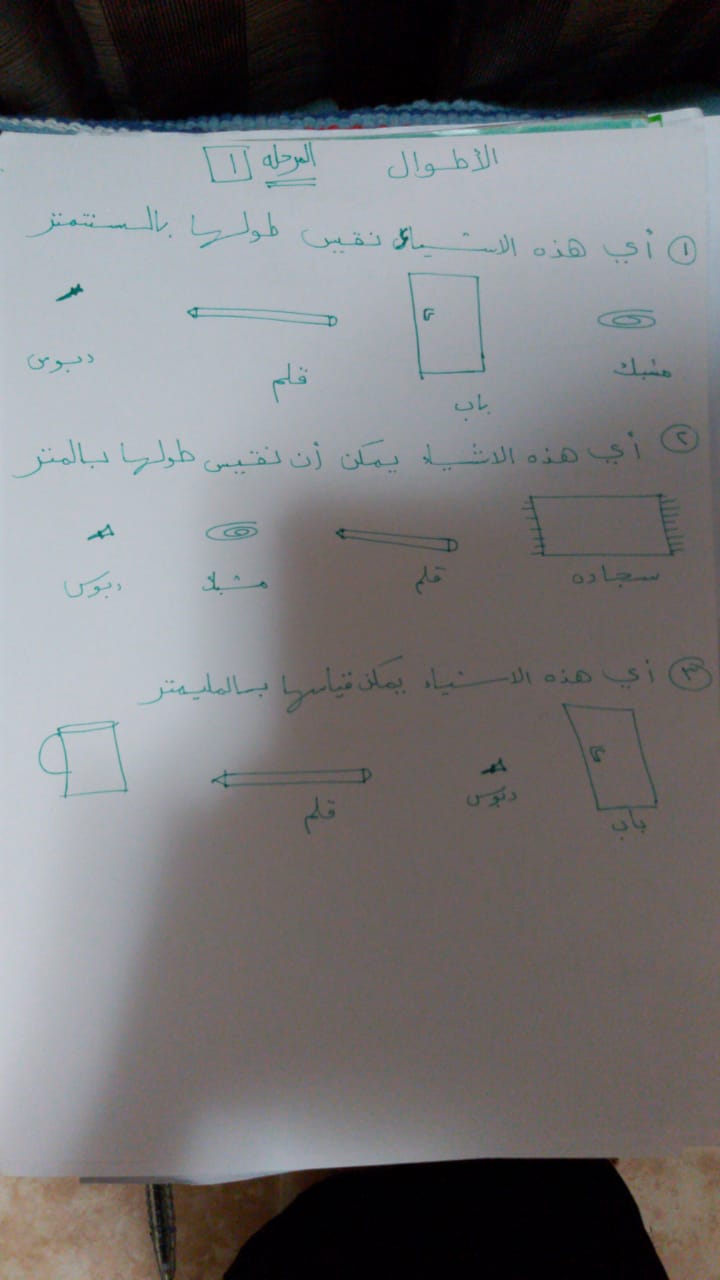 الأطوال المرحله ١
١ أي هذه الاشياء نقيس طولها بالسنتمتر
مشبك باب قلم دبوس
٢ أي هذه الاشياء يمكن أن نقيس طولها بالمتر
سجاده قلم مشبك دبوس
٣ أي هذه الاشياء يمكن قياسها بالمليمتر
باب دبوس قلم